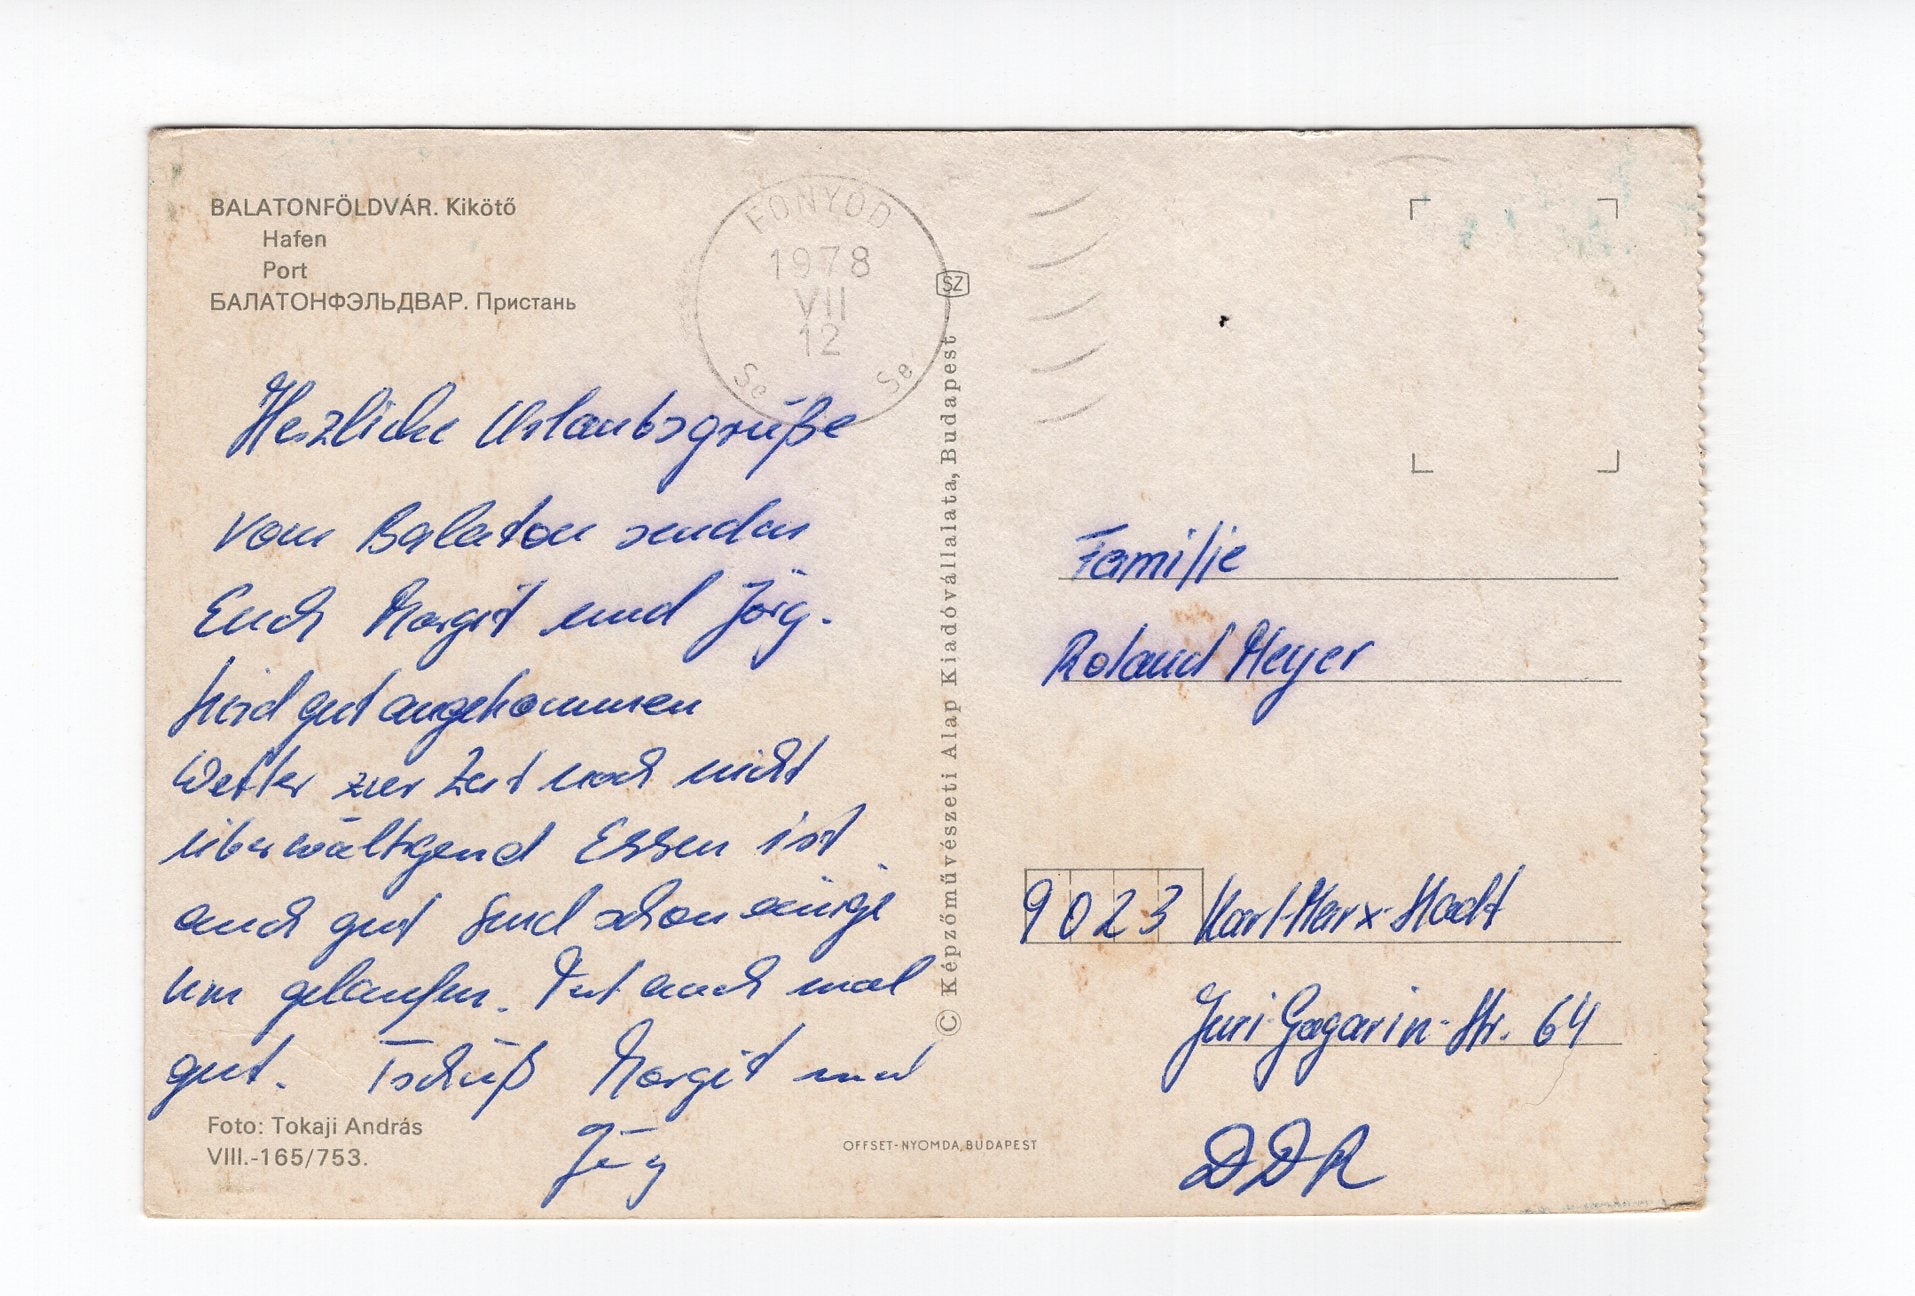 BALATONFÖLDVÁR. Kikötő
Hafen
Port
БАЛАТОНФЭЛЬДВАР. Пристань
FONYÓD
1978
VII
12
Se
Se
SZ
Herzliche Urlaubsgrüße
vom Balaton senden
Euch Margit und Jörg.
Sind gut angekommen
Wetter zur Zeit noch nicht
überwältigend Essen ist
auch gut Sind schon einige
km gelaufen. Tut auch mal
gut. Tschüß Margit und
Jörg
Foto: Tokaji András
VIII.-165/753.
© Képzőművészeti Alap Kiadóvállalata, Budapest
OFFSET-NYOMDA, BUDAPEST
Familie
Roland Meyer
9023 Karl-Marx-Stadt
Juri-Gagarin-Str. 64
DDR